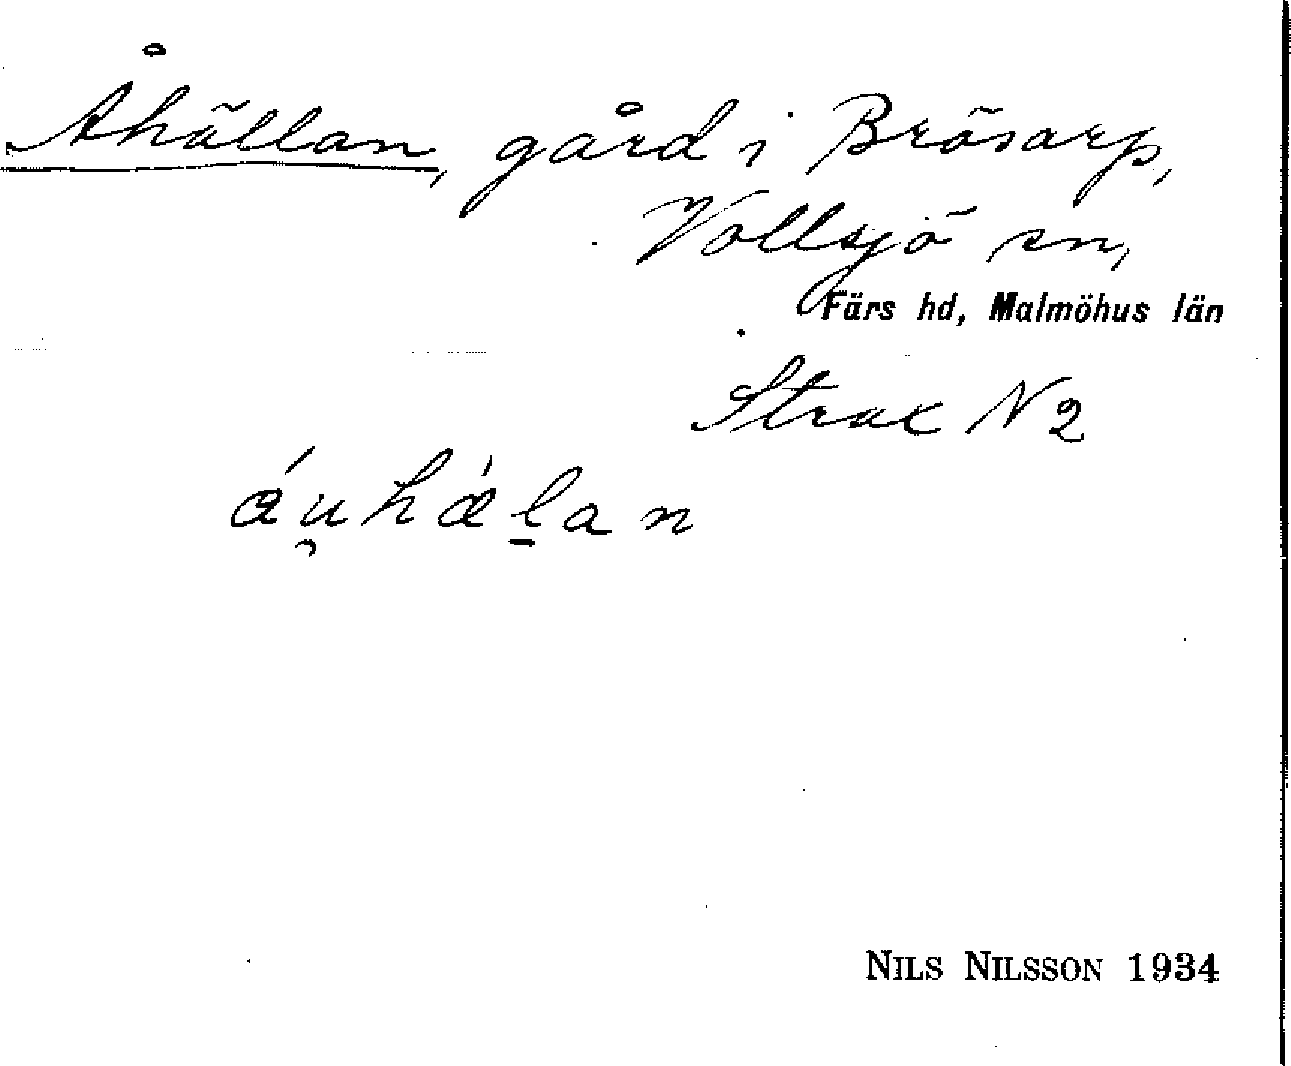 Åhällan, gård i Brösarp,
Vollsjö sn,
Färs hd, Malmöhus län
Strax N 2
ǽu̯hǽl̠an
NILS NILSSON 1934